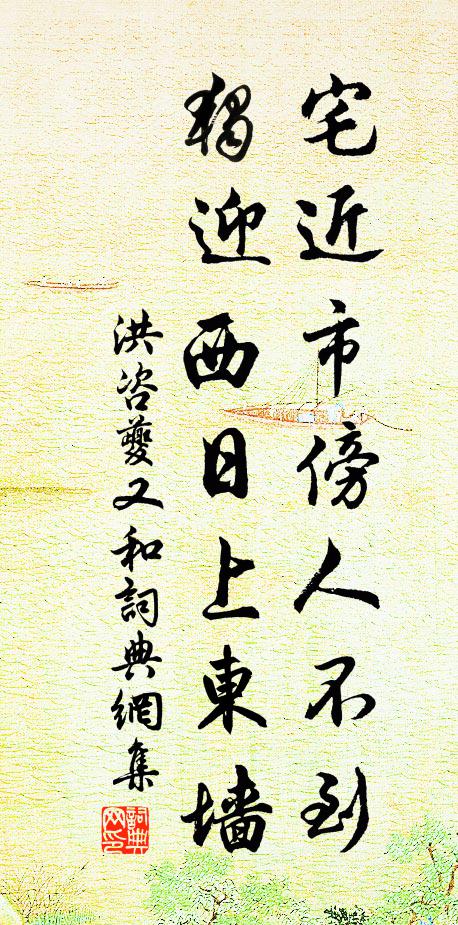 宅近市傍人不到
獨迎西日上東墻
洪咨夔又和詞典網集
詞典网印